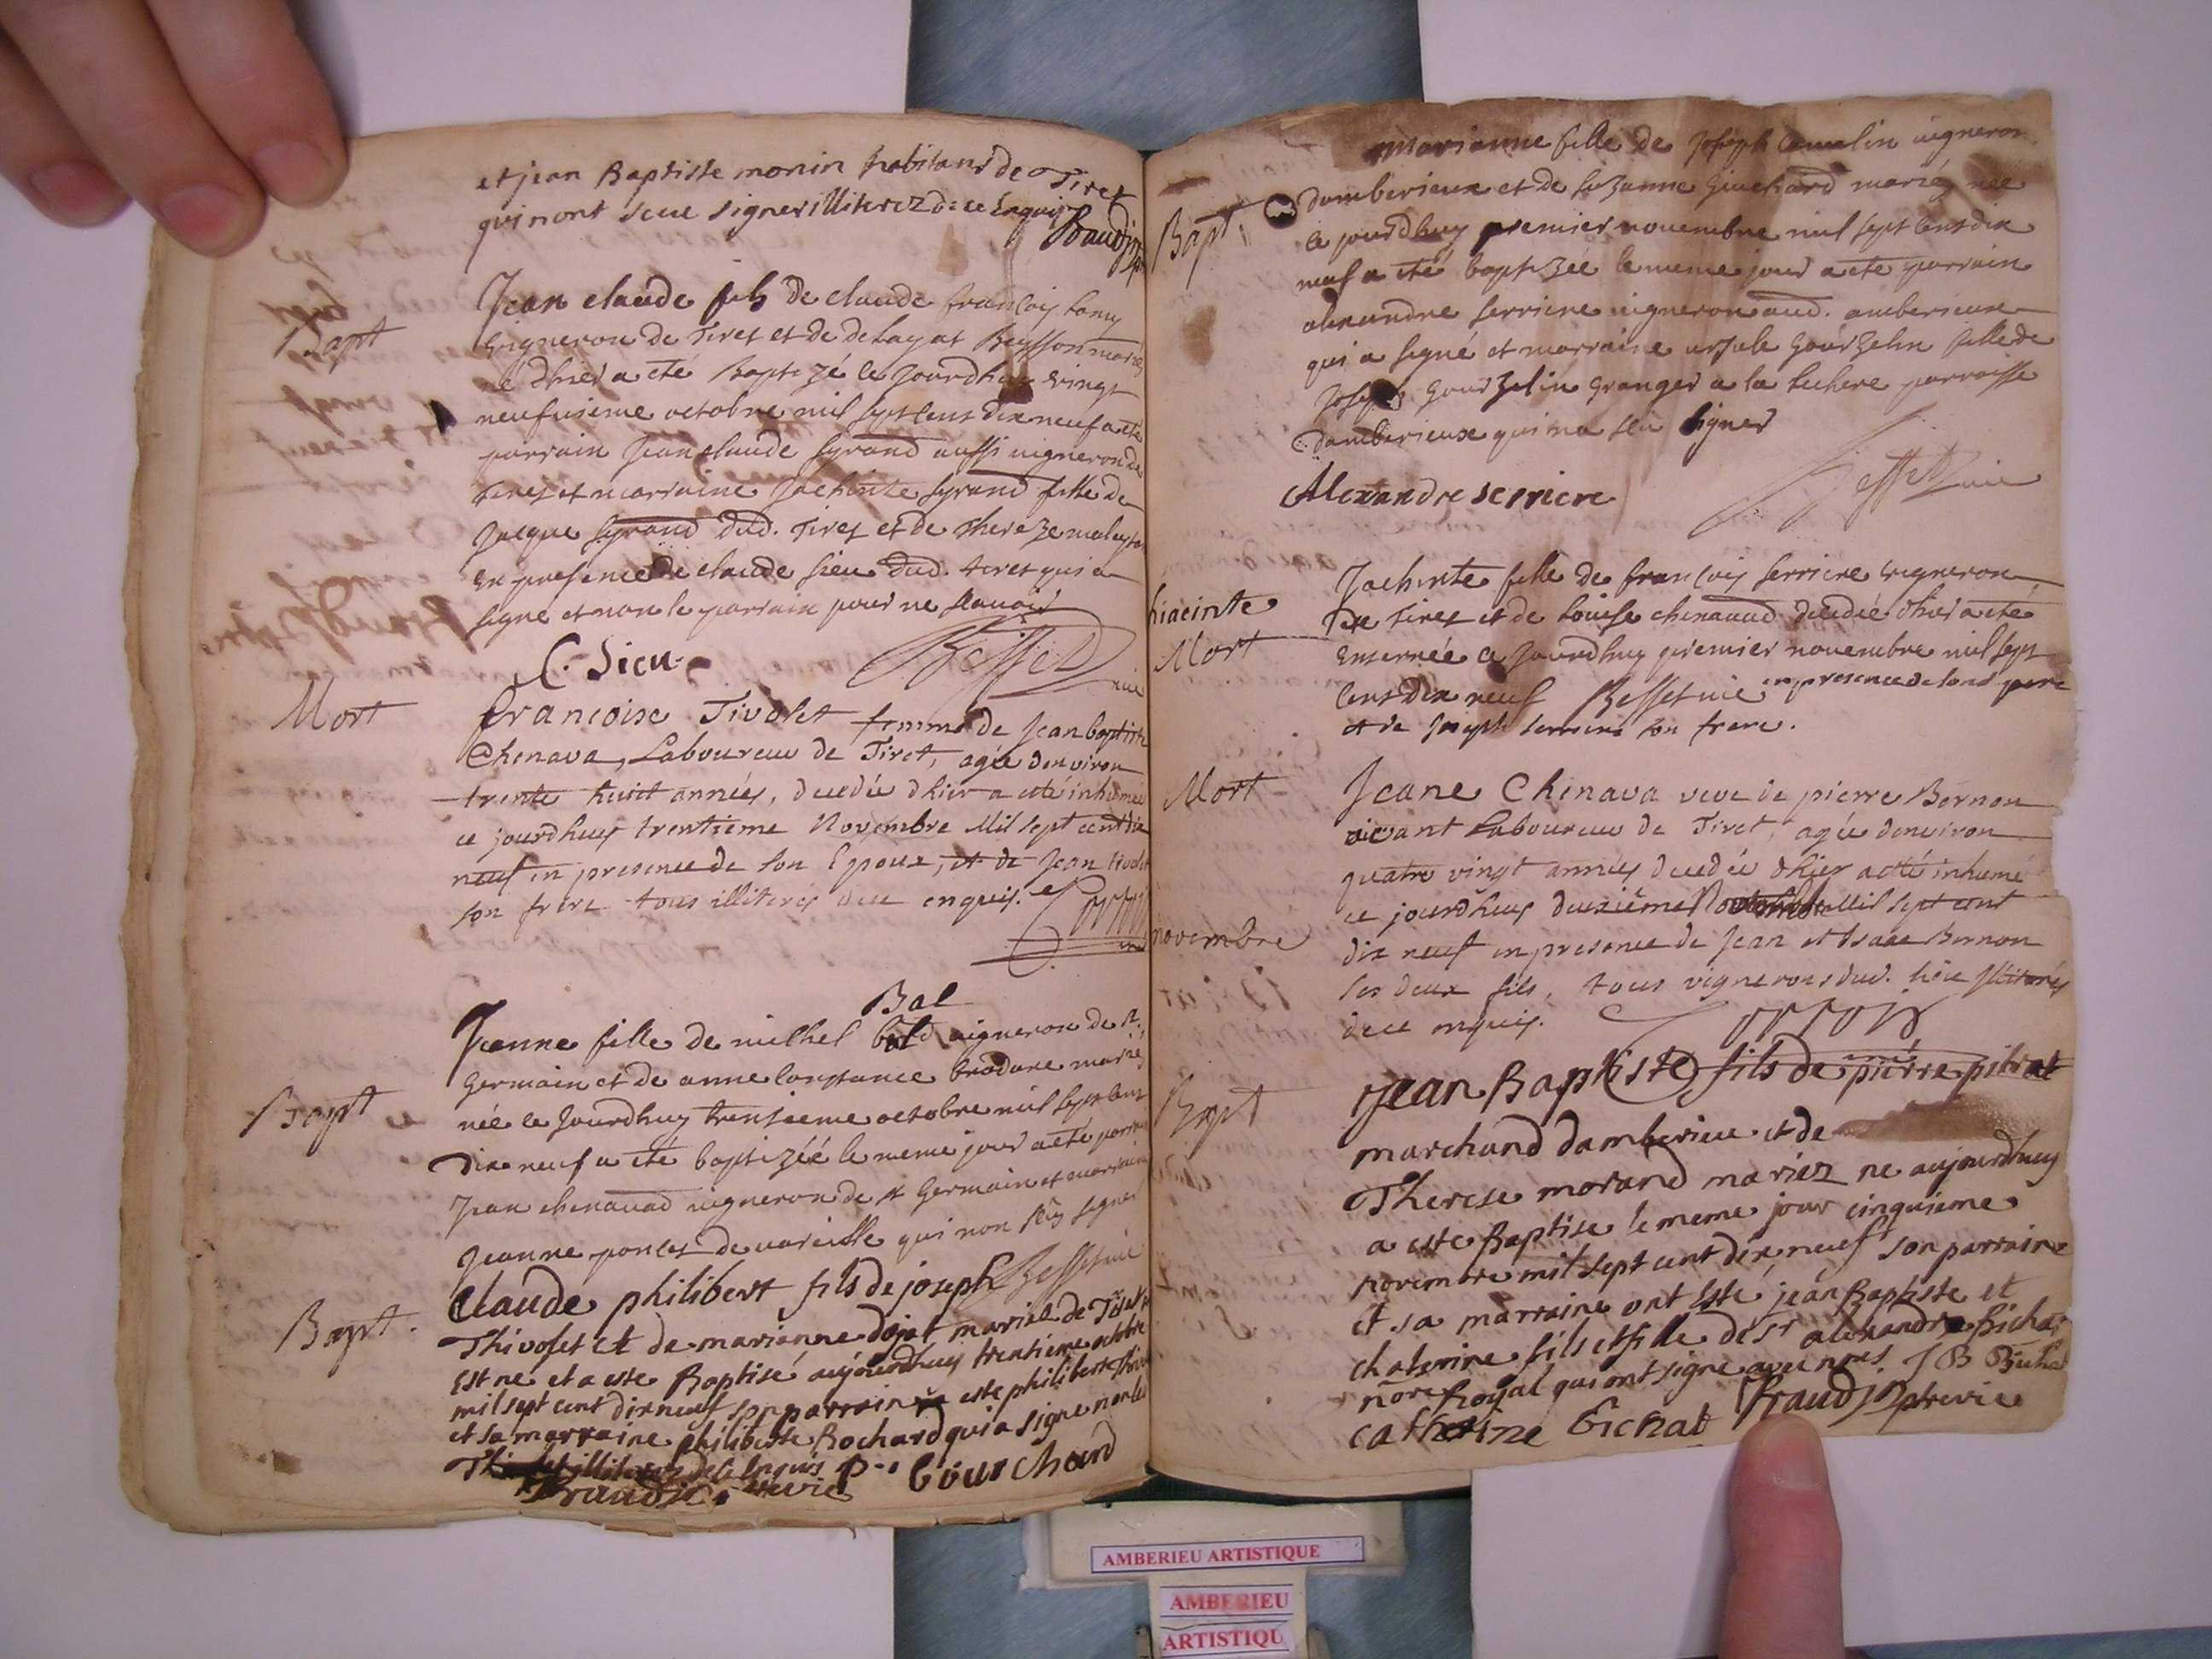 et jean Baptiste monin habitans de Tiret
qui nont sceu signer illiterez de ce Enquis
Bapt
Jean claude fils de claude françois
vigneron de Tiret et de
né dhier a eté Baptizé ce jourdhuy vingt
neufuieme octobre mil sept cens dix neuf a eté
parrain Jean claude syrand aussi vigneron de
tiret et marraine Jachinte syrand fille de
Jacque syrand dud. Tiret et de thereze
en presence de claude sieu dud. tiret qui a
signé et non le parrain pour ne scauoir
C. Sieu
Besset vic
Mort
françoise Tivolet femme de Jean baptiste
Chenava, Laboureur de Tiret, agée denviron
trente huict années, decedée dhier a esté inhumée
ce jourdhuy trentieme Novembre Mil sept cent dix
neuf en presence de son Epoux, et de Jean
son frere tous illiterés dece enquis.
Bal
Bapt
Jeanne fille de michel vigneron de st
Germain et de anne constance brodure mariés
née ce jourdhuy trentieme octobre mil sept cens
Dix neuf a été baptizéé le meme jour a eté parrain
Jean chenauad vigneron de st Germain et marraine
Jeanne poncet de uareille qui non sçu signer
Besset vic
Bapt.
Claude philibert fils de joseph
Thivolet et de marianne dojat mariez de Tiret
Est né et a este Baptisé aujourdhuy trentieme octobre
mil sept cent dix neuf son parrain a este philibert
et sa marraine philiberte Bochard qui a signe non le
illiterez de ce Enquis p. bouchard
vicie
Marianne fille de Joseph vigneron
Bapt.
damberieux et de suzanne Guichard mariés née
ce jourdhuy premier nouembre mil sept cens dix
neuf a eté baptizee le meme jour a ete parrain
alexandre serriere vigneron aud. amberieux
qui a signé et marraine ursule gourzelin fille de
Joseph gourzelin granger a la lechere parroisse
damberieux qui na sçu signer
Alexandre serriere
Besset vic
hiacinte
Mort
Jachinte fille de françois serriere vigneron
de tiret et de Louise chenauad decedée dhier a eté
enterrée ce jourdhuy premier nouembre mil sept
cens dix neuf Besset vic en presence de sond pere
et de Joseph serriere son frere.
Mort
Jeane Chenava veve de pierre Bernon
vivant Laboureur de Tiret, agée denviron
quatre vingt années decedée dhier a esté inhumé
novembre
ce jourdhuy deuxième Mil sept cent
dix neuf en presence de Jean et Isaac Bernon
ses deux fils, tous vignerons dud. lieu illiterés
dece enquis.
Bapt
Jean Baptiste fils de pierre
marchand damberieu et de
Therese morand mariez ne aujourdhuy
a este Baptise le meme jour cinquieme
novembre mil sept cent dix neuf son parrain
et sa marraine ont Esté jean Baptiste et
chaterine fils et fille de sr alexandre Bichat
nore Royal qui ont signe avec nous. J B Bichat
catherine Bichat pvicie
AMBERIEU ARTISTIQUE
AMBERIEU
ARTISTIQU